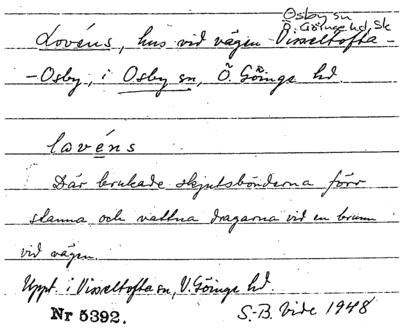 Osby sn
Ö. Göinge hd, Sk
Lovéns, hus vid vägen Visseltofta-
-Osby, i Osby sn, Ö. Göinge hd.
lovéns
Där brukade skjutsbönderna förr
stanna och vattna dragarna vid en brunn
vid vägen.
Uppt. i Visseltofta sn, V. Göinge hd.
Nr 5392.
S.-B. Vide 1948